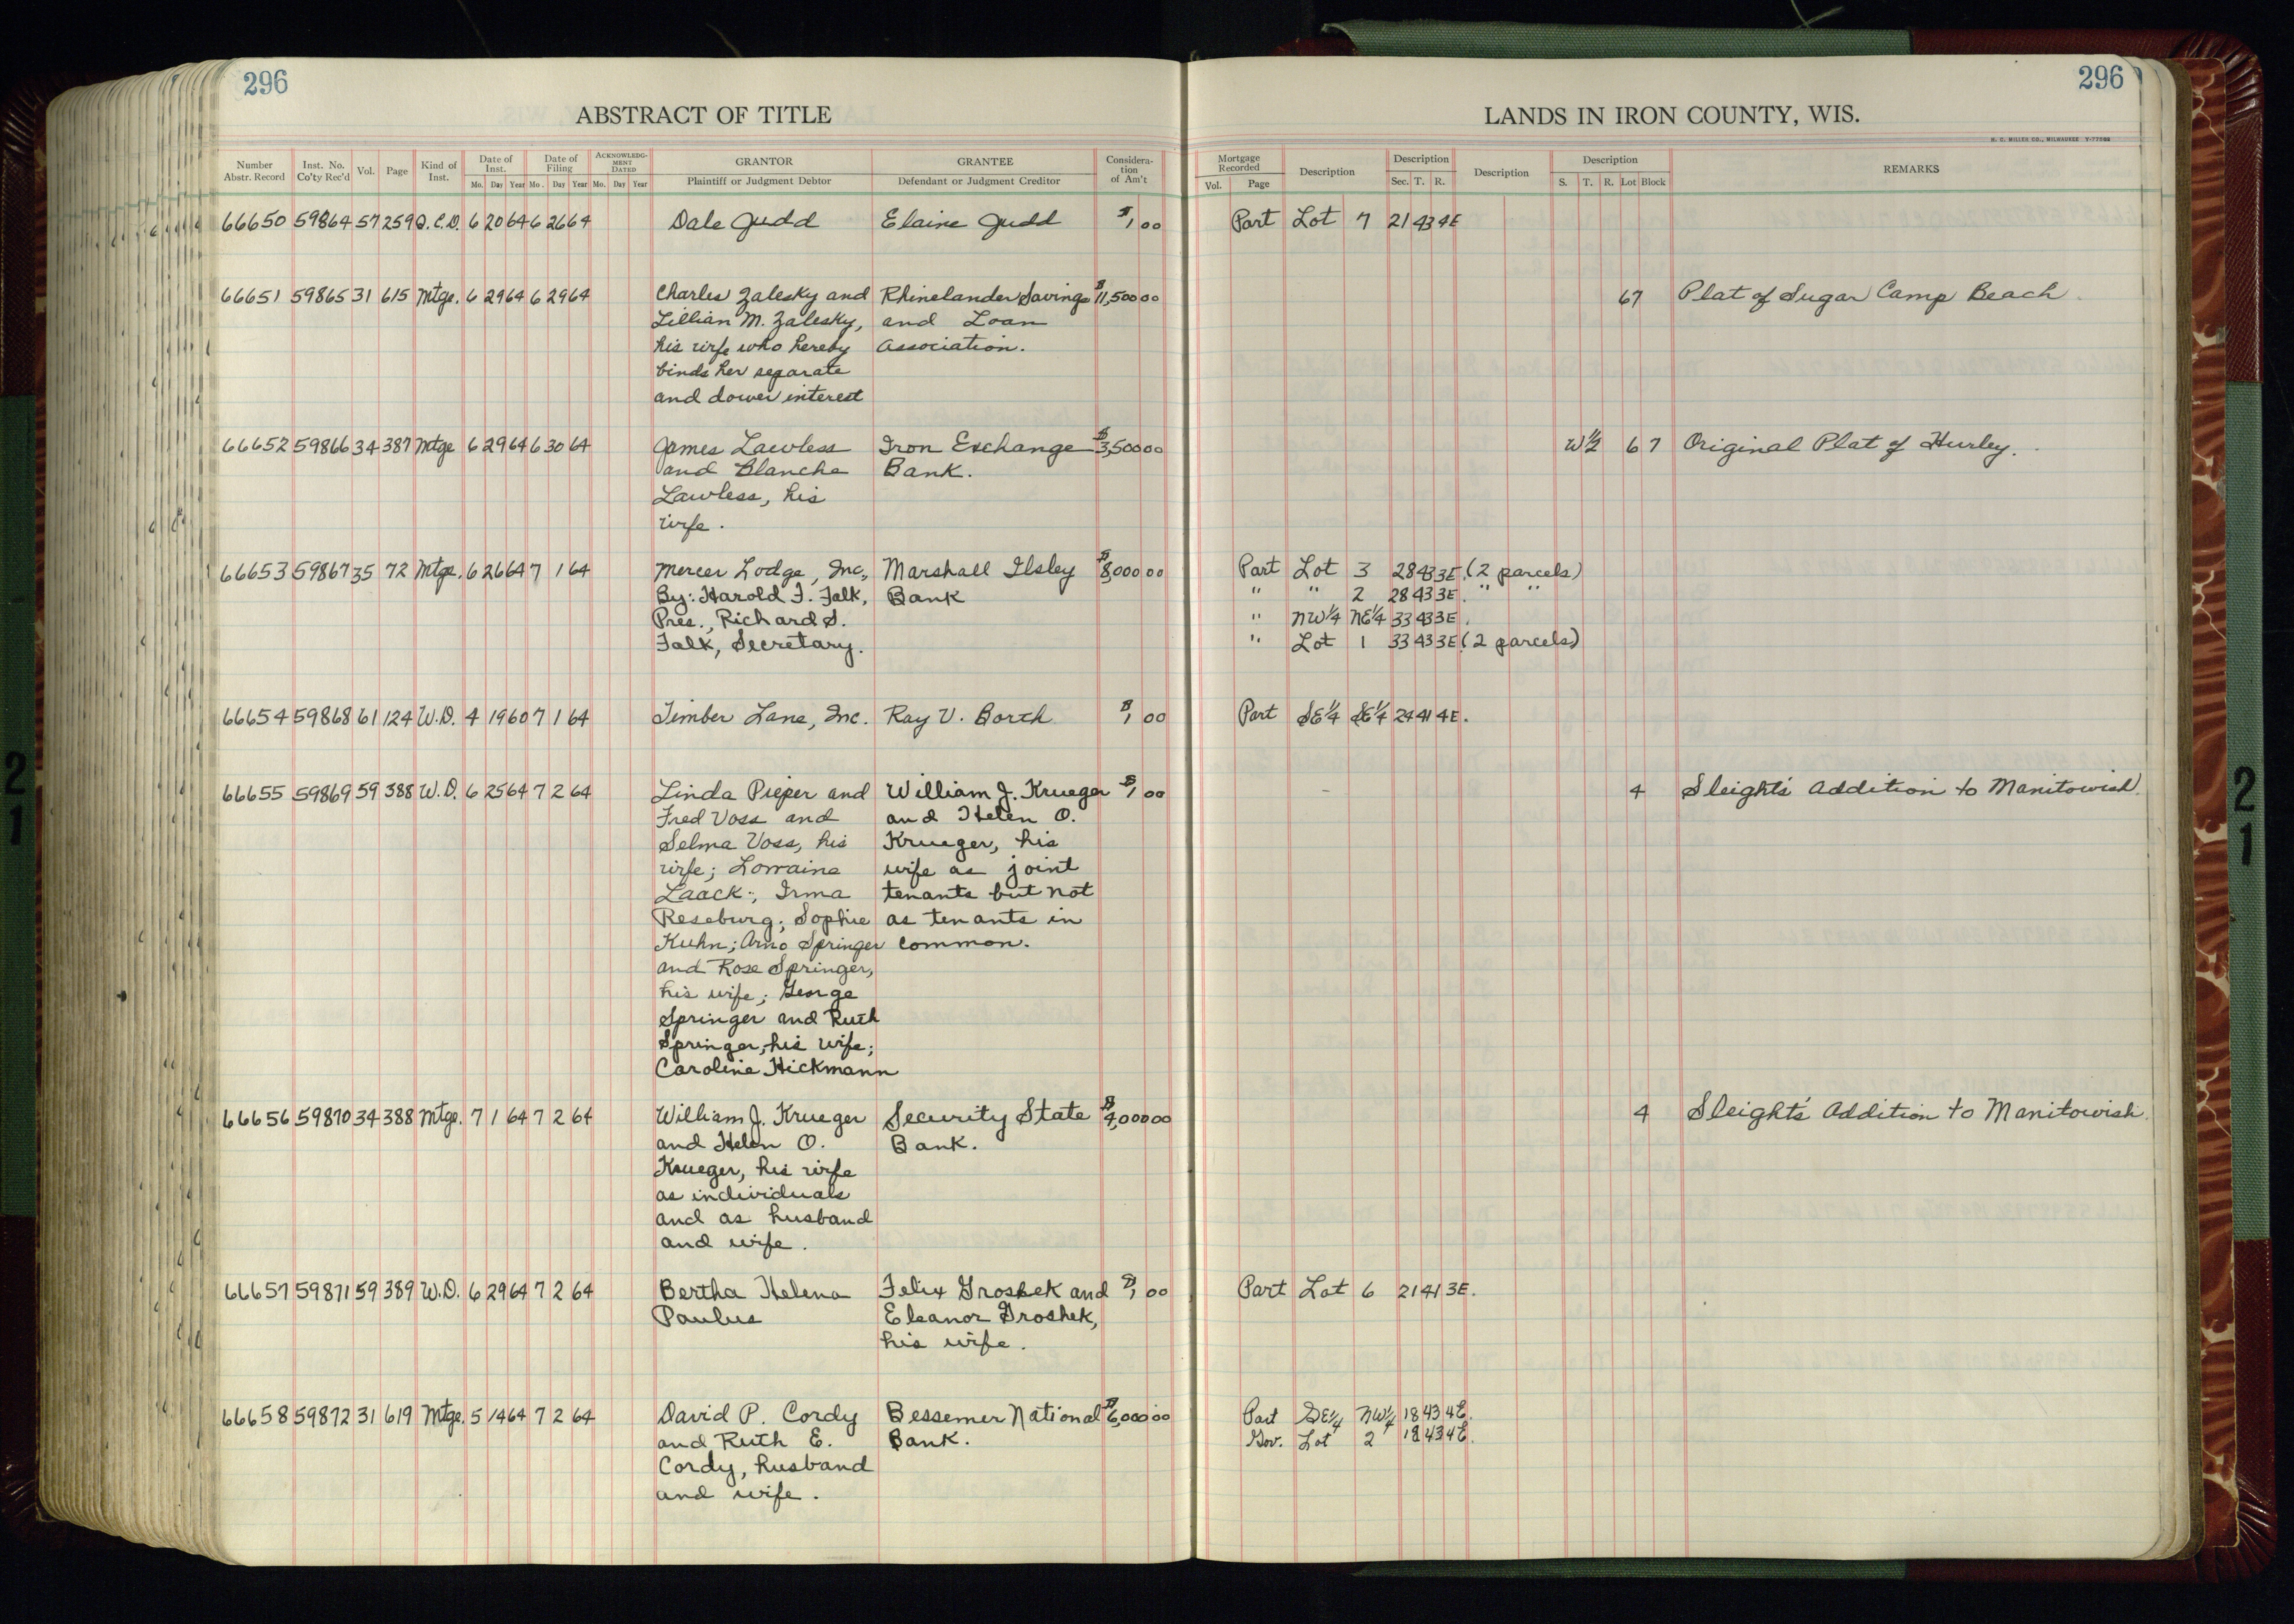 296
296
ABSTRACT OF TITLE
LANDS IN IRON COUNTY, WIS.
H. C. MILLER CO., MILWAUKEE
Number Abstr. Record
Inst. No. Co'ty Rec'd
Vol.
Page
Kind of Inst.
Date of Inst.
Mo. Day Year
Date of Filing
Mo. Day Year
ACKNOWLEDGMENT DATED
Mo. Day Year
GRANTOR
Plaintiff or Judgment Debtor
GRANTEE
Defendant or Judgment Creditor
Consideration of Am't
Mortgage Recorded
Vol. Page
Description
Description
Sec. T. R.
Description
Description
S. T. R. Lot Block
REMARKS
66650 59864 57 259 Q.C.D. 6 20 64 6 26 64 Dale Judd Elaine Judd $1 00 Part Lot 7 21 43 4E
66651 59865 31 615 Mtge. 6 29 64 6 29 64 Charles Zalesky and Rhinelander Savings $11,500 00 67 Plat of Sugar Camp Beach.
Lillian M. Zalesky, and Loan
his wife who hereby Association.
binds her separate
and dower interest
66652 59866 34 387 Mtge 6 29 64 6 30 64 James Lawless Iron Exchange $3,500 00 W½ 6 7 Original Plat of Hurley.
and Blanche Bank.
Lawless, his
wife.
66653 59867 35 72 Mtge. 6 26 64 7 1 64 Mercer Lodge, Inc., Marshall Ilsley $8,000 00 Part Lot 3 28 43 3E. (2 parcels)
By: Harold F. Falk, Bank " " 2 28 43 3E. " "
Pres., Richard S. " NW¼ NE¼ 33 43 3E.
Falk, Secretary. " Lot 1 33 43 3E. (2 parcels)
66654 59868 61 124 W.D. 4 19 60 7 1 64 Timber Lane, Inc. Ray V. Borth $1 00 Part SE¼ SE¼ 24 41 4E.
66655 59869 59 388 W.D. 6 25 64 7 2 64 Linda Pieper and William J. Krueger $1 00 4 Sleight's Addition to Manitowish.
Fred Voss and and Helen O.
Selma Voss, his Krueger, his
wife; Lorraine wife as joint
Laack; Irma tenants but not
Reseburg; Sophie as tenants in
Kuhn; Arno Springer common.
and Rose Springer,
his wife; George
Springer and Ruth
Springer, his wife;
Caroline Hickmann
66656 59870 34 388 Mtge. 7 1 64 7 2 64 William J. Krueger Security State $4,000 00 4 Sleight's Addition to Manitowish.
and Helen O. Bank.
Krueger, his wife
as individuals
and as husband
and wife.
66657 59871 59 389 W.D. 6 29 64 7 2 64 Bertha Helena Felix Groshek and $1 00 Part Lot 6 21 41 3E.
Paulus Eleanor Groshek,
his wife.
66658 59872 31 619 Mtge. 5 14 64 7 2 64 David P. Cordy Bessemer National $6,000 00 Part SE¼ NW¼ 18 43 4E.
and Ruth E. Bank. Gov. Lot 2 18 43 4E.
Cordy, husband
and wife.
21
21